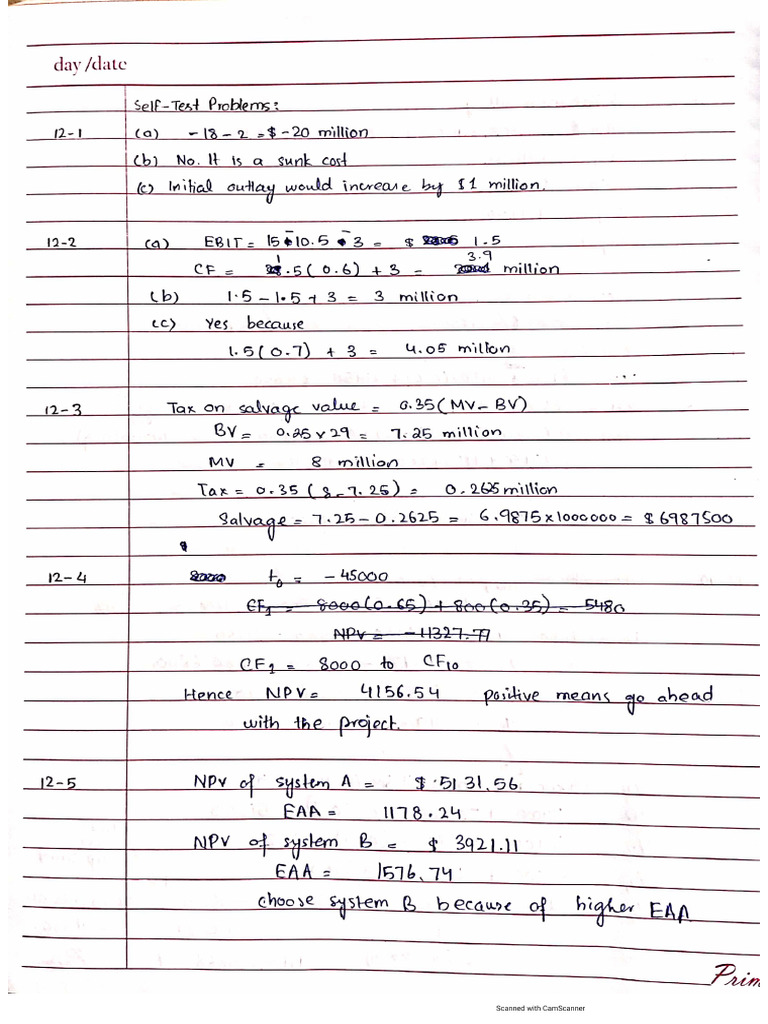 day/date
Self-Test Problems:
12-1 (a) -18-2 = $-20 million
(b) No. It is a sunk cost
(c) Initial outlay would increase by $1 million.
12-2 (a) EBIT = 15-10.5-3 = $ 1.5
CF = 1.5(0.6) + 3 = 3.9 million
(b) 1.5-1.5+3 = 3 million
(c) Yes because
1.5(0.7) + 3 = 4.05 millon
12-3 Tax on salvage value = 0.35(MV-BV)
BV = 0.25x29 = 7.25 million
MV = 8 million
Tax = 0.35(8-7.25) = 0.2625 million
Salvage = 7.25-0.2625 = 6.9875x1000000 = $6987500
12-4 t0 = -45000
CF1 = 8000(0.65)+800(0.35) = 5480
NPV = -11327.77
CF1 = 8000 to CF10
Hence NPV = 4156.54 positive means go ahead
with the project.
12-5 NPV of system A = $5131.56
EAA = 1178.24
NPV of system B = $ 3921.11
EAA = 1576.74
choose system B because of higher EAA
Prim
Scanned with CamScanner